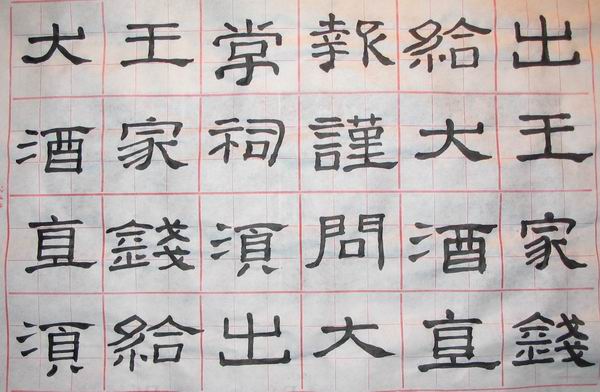 出王家錢
給大酒直
報謹問大
掌祠須出
王家錢給
大酒直須